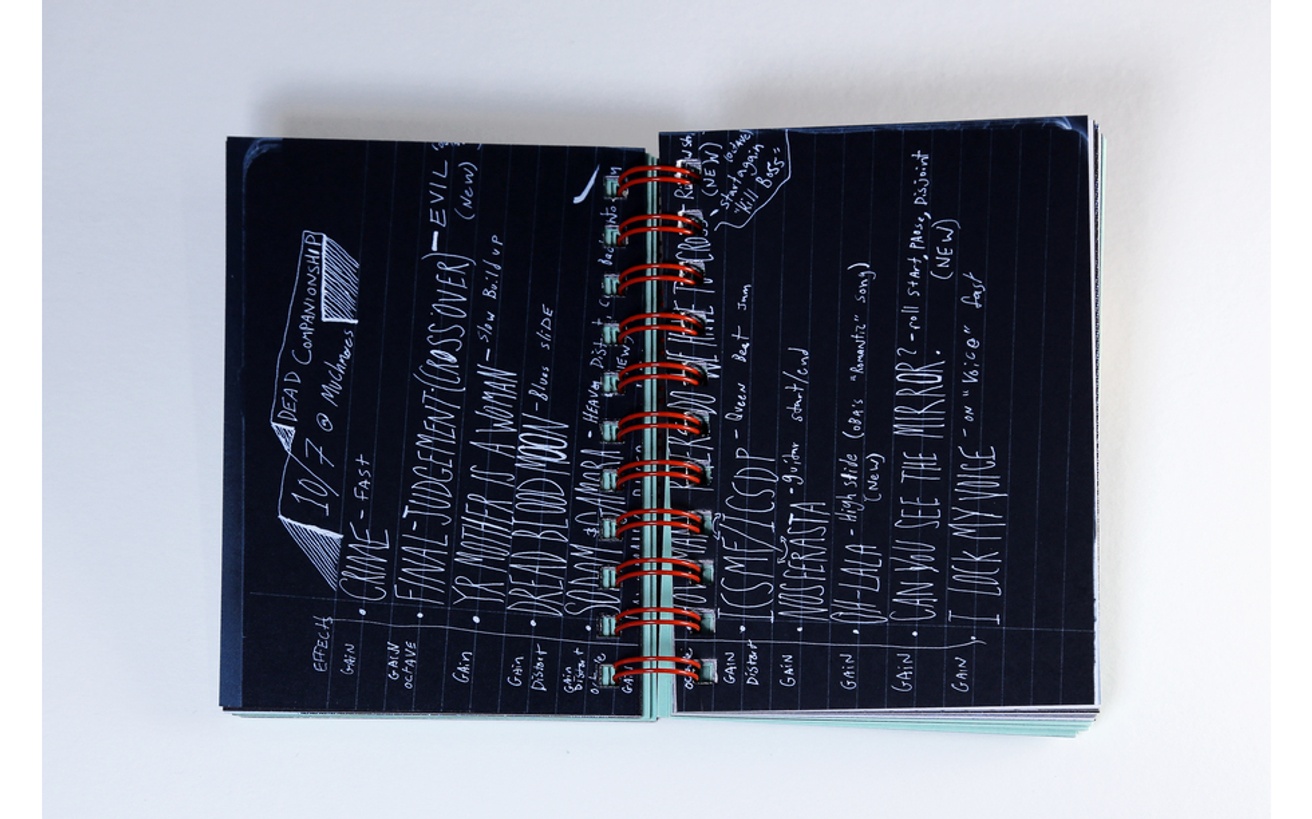 DEAD COMPANIONSHIP
10/7 @ Mychnoees
EFFECTS
GAIN • CRIME - FAST
GAIN OCTAVE • FINAL-JUDGEMENT (CROSSOVER) — EVIL
(New)
GAIN • YR MOTHER IS A WOMAN - Slow Build up
GAIN Distort • DREAD BLOOD MOON - Blues sliDE
GAIN Distort octave • SODOM & AMORA - HEAVY Dist.
GAIN
octave DO WE HAVE TO CROSS
(NEW)
- start again
"Kill Boss"
GAIN Distort • ICSMF/ICSDP - Queen Beat Jam
GAIN • NOSFERASTA - guitar start/end
GAIN • OH-LALA - High slide (OBA'S "Romantiz" song)
(New)
GAIN • CAN YOU SEE THE MIRROR? - roll start, PAuse, DISJoint
(NEW)
GAIN • I LOCK MY VOICE - on "Voice" fast